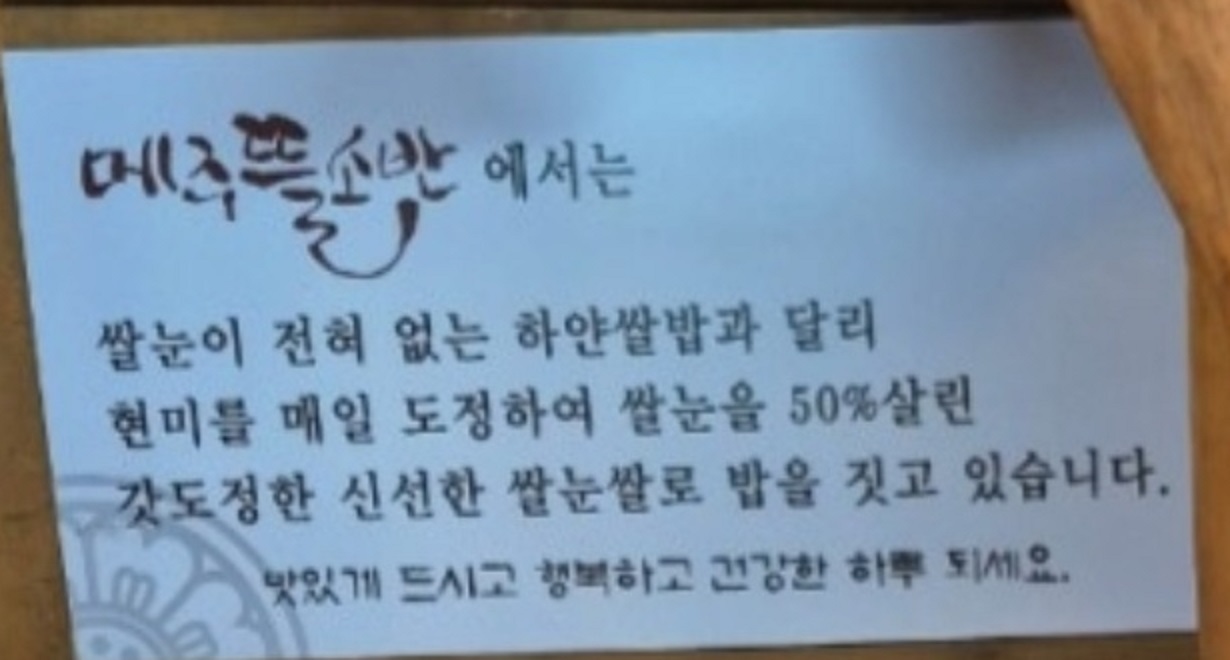 메주뜰소반 에서는
쌀눈이 전혀 없는 하얀쌀밥과 달리
현미를 매일 도정하여 쌀눈을 50%살린
갓도정한 신선한 쌀눈쌀로 밥을 짓고 있습니다.
맛있게 드시고 행복하고 건강한 하루 되세요.